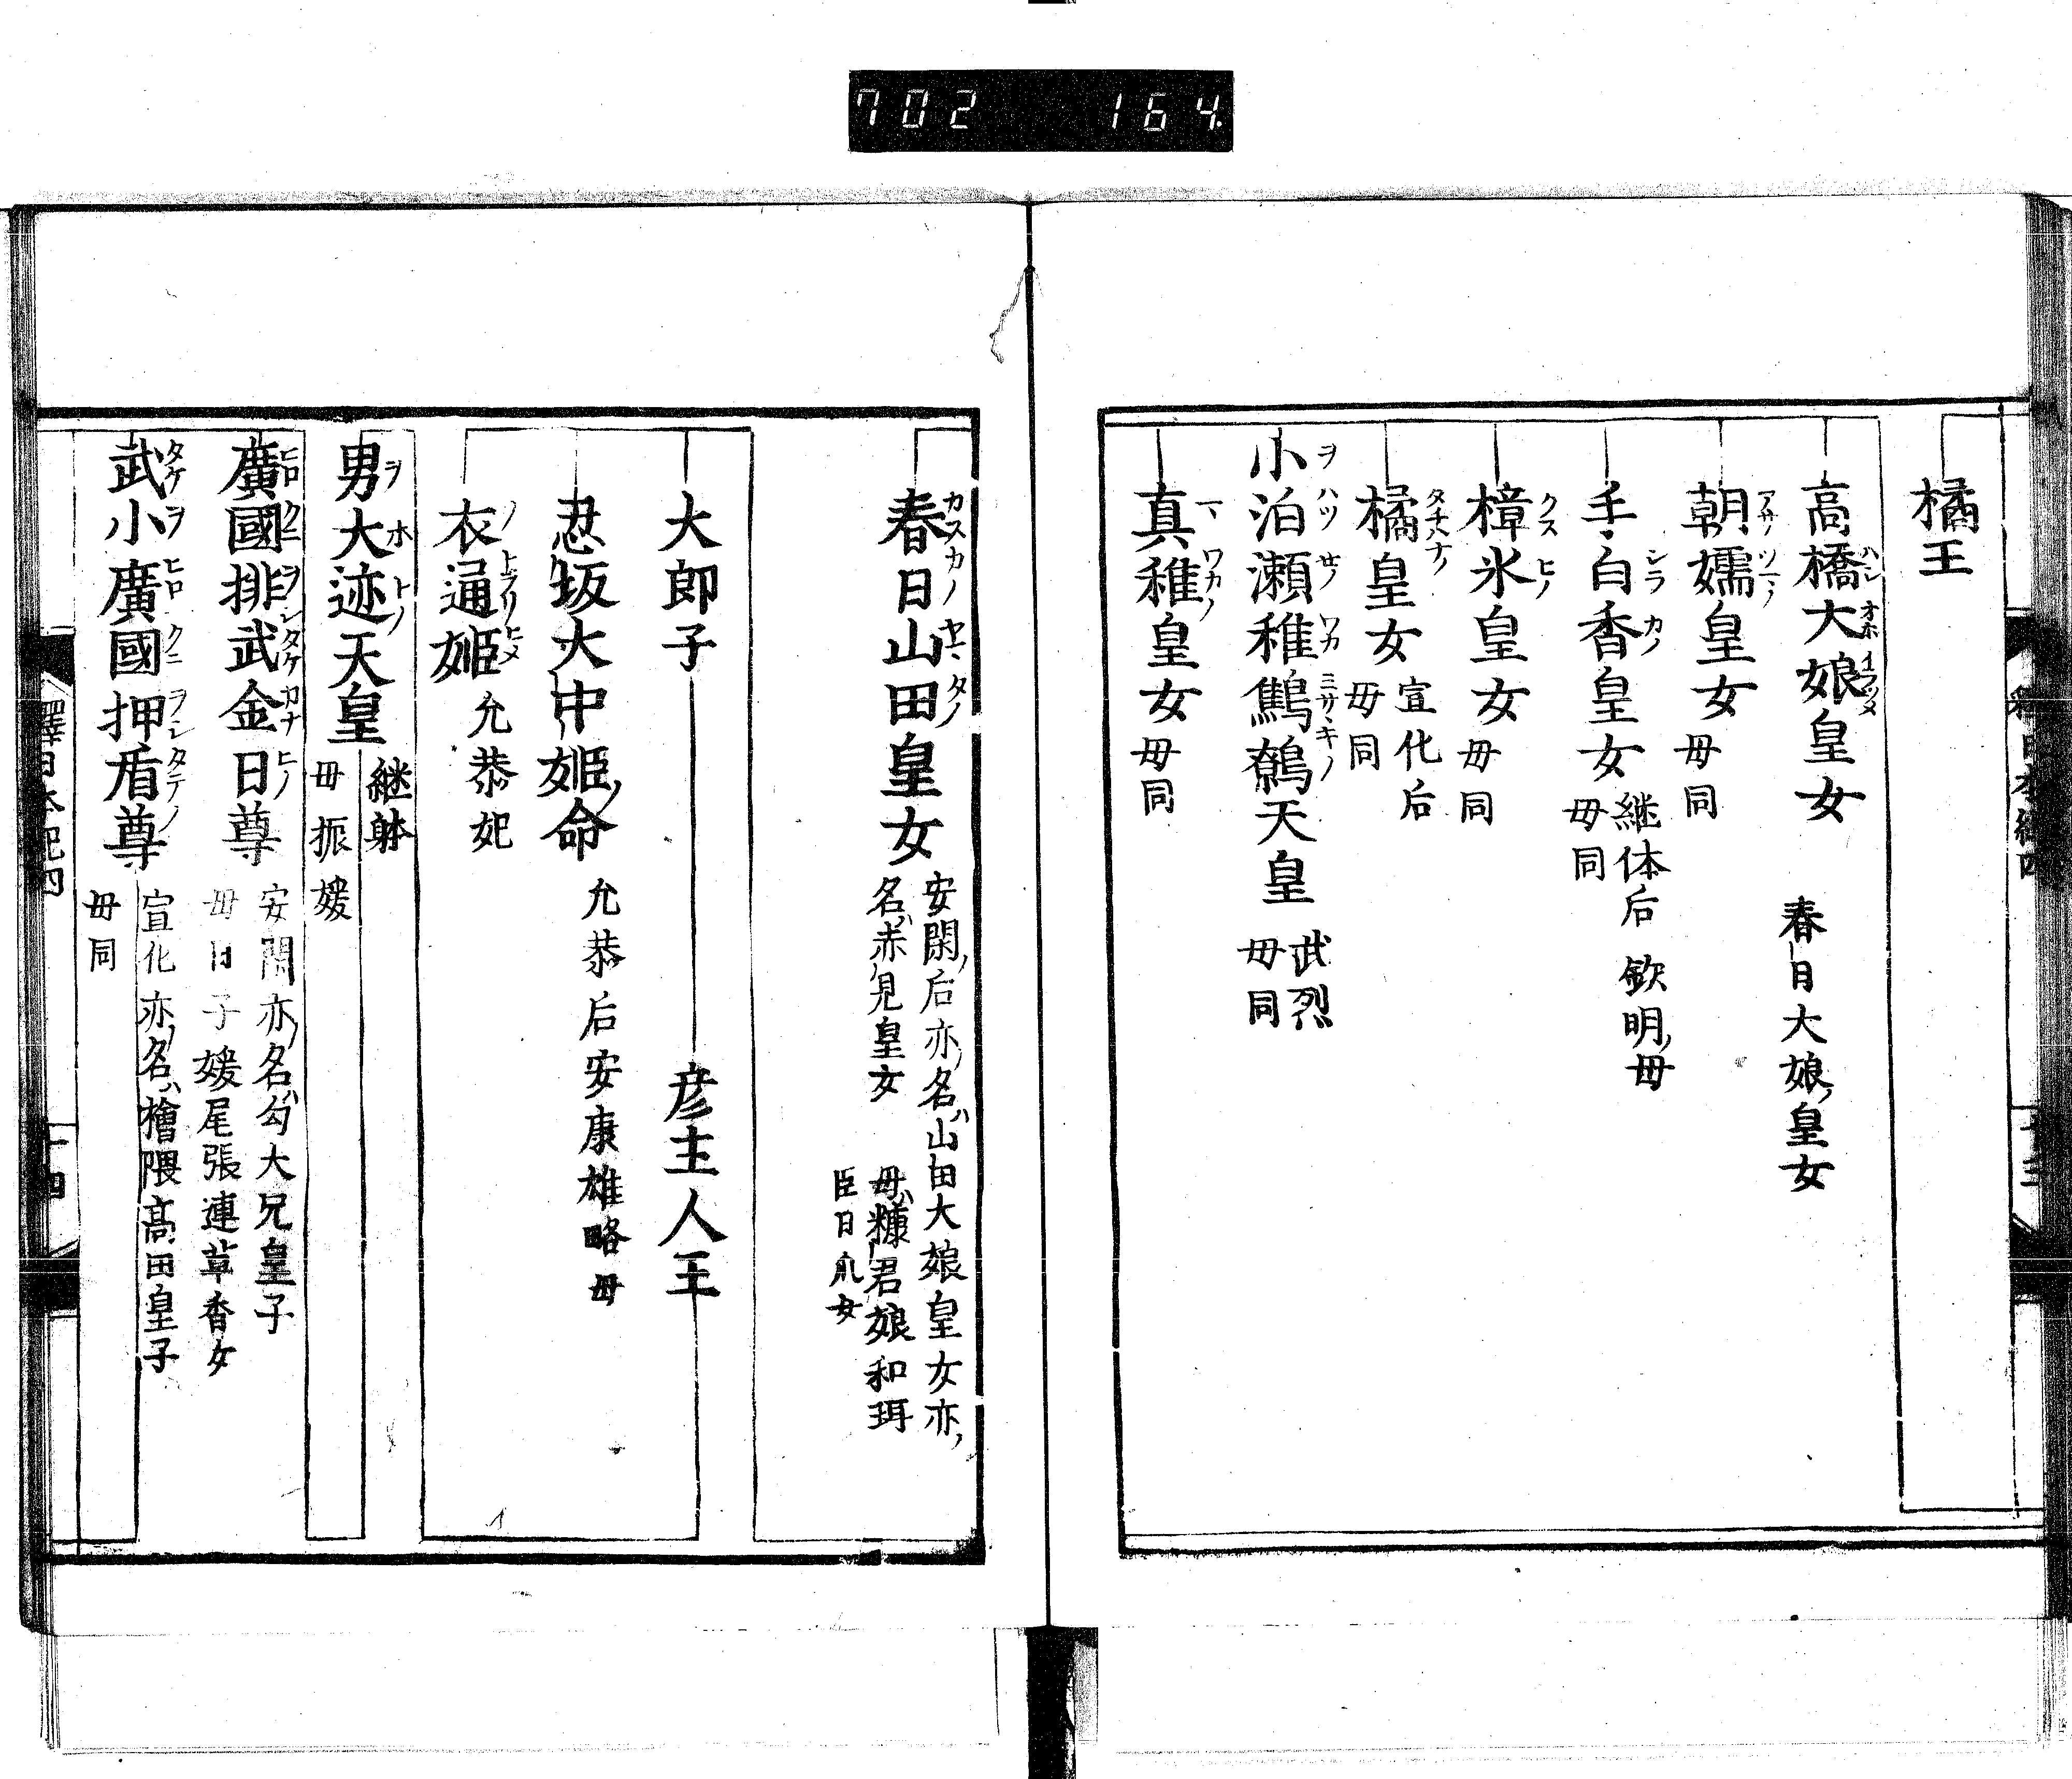 702 164
橘王
高橋大娘皇女 春日大娘ノ皇女
朝嬬皇女 毋同
手白香皇女 継体后 欽明ノ毋
毋同
樟氷皇女 毋同
橘皇女 宣化后
毋同
小泊瀬稚鷦鷯天皇 武烈
毋同
真稚皇女 毋同
春日山田皇女 安閑ノ后亦ノ名ハ山田大娘皇女亦ノ
名ハ赤見皇女 毋ハ糠君娘和珥
臣日爪女
大郎子 彦主人王
忍坂大中姫ノ命 允恭后安康雄略毋
衣通姫 允恭妃
男大迹天皇 継躰
毋振媛
廣國排武金日尊 安閑亦ノ名ハ勾大兄皇子
毋日子媛尾張連草香女
武小廣國押盾尊 宣化亦ノ名ハ檜隈高田皇子
毋同
釋日本紀四
十四